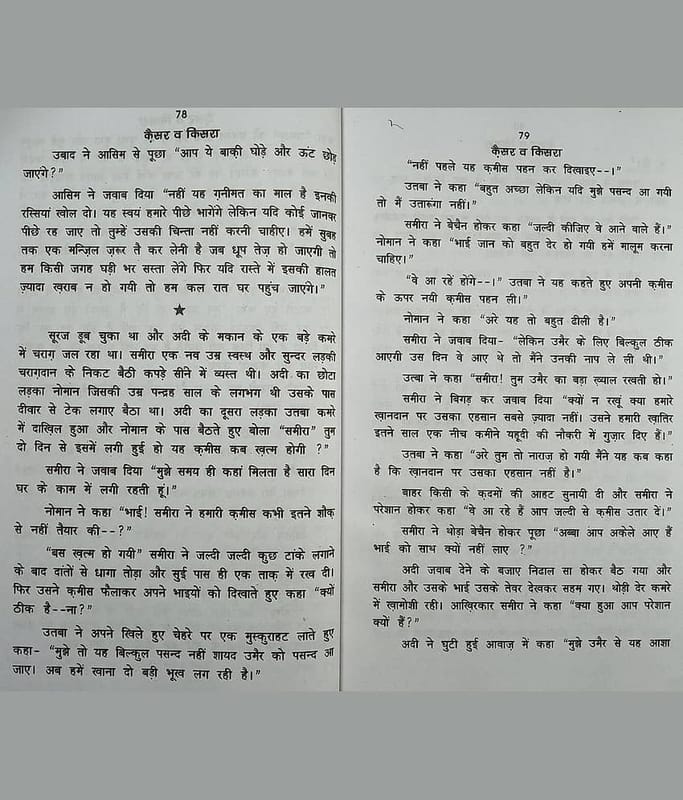 78
कै़सर व किसरा
उबाद ने आसिम से पूछा “आप ये बाक़ी घोड़े और ऊंट छोड़
जाएगे?”
आसिम ने जवाब दिया “नहीं यह ग़नीमत का माल है इनकी
रस्सियां खोल दो। यह स्वयं हमारे पीछे भागेंगे लेकिन यदि कोई जानवर
पीछे रह जाए तो तुम्हें उसकी चिन्ता नहीं करनी चाहीए। हमें सुबह
तक एक मन्ज़िल ज़रूर तै कर लेनी है जब धूप तेज़ हो जाएगी तो
हम किसी जगह घड़ी भर सस्ता लेंगे फिर यदि रास्ते में इसकी हालत
ज़्यादा ख़राब न हो गयी तो हम कल रात घर पहुंच जाएंगे।”
★
सूरज डूब चुका था और अदी के मकान के एक बड़े कमरे
में चराग़ जल रहा था। समीरा एक नव उम्र स्वस्थ और सुन्दर लड़की
चराग़दान के निकट बैठी कपड़े सीने में व्यस्त थी। अदी का छोटा
लड़का नोमान जिसकी उम्र पन्द्रह साल के लगभग थी उसके पास
दीवार से टेक लगाए बैठा था। अदी का दूसरा लड़का उतबा कमरे
में दाख़िल हुआ और नोमान के पास बैठते हुए बोला “समीरा” तुम
दो दिन से इसमें लगी हुई हो यह क़मीस कब ख़त्म होगी ?”
समीरा ने जवाब दिया “मुझे समय ही कहां मिलता है सारा दिन
घर के काम में लगी रहती हूं।”
नोमान ने कहा “भाई! समीरा ने हमारी क़मीस कभी इतने शौक़
से नहीं तैयार की--?”
“बस ख़त्म हो गयी” समीरा ने जल्दी जल्दी कुछ टांके लगाने
के बाद दांतों से धागा तोड़ा और सुई पास ही एक ताक़ में रख दी।
फिर उसने क़मीस फैलाकर अपने भाइयों को दिखाते हुए कहा “क्यों
ठीक है--ना?”
उतबा ने अपने खिले हुए चेहरे पर एक मुस्कुराहट लाते हुए
कहा- “मुझे तो यह बिल्कुल पसन्द नहीं शायद उमैर को पसन्द आ
जाए। अब हमें खाना दो बड़ी भूख लग रही है।”
79
कै़सर व किसरा
“नहीं पहले यह क़मीस पहन कर दिखाइए--।”
उतबा ने कहा “बहुत अच्छा लेकिन यदि मुझे पसन्द आ गयी
तो मैं उतारूंगा नहीं।”
समीरा ने बेचैन होकर कहा “जल्दी कीजिए वे आने वाले हैं।”
नोमान ने कहा “भाई जान को बहुत देर हो गयी हमें मालूम करना
चाहिए।”
“वे आ रहें होंगे--।” उतबा ने यह कहते हुए अपनी क़मीस
के ऊपर नयी क़मीस पहन ली।”
नोमान ने कहा “अरे यह तो बहुत ढीली है।”
समीरा ने जवाब दिया- “लेकिन उमैर के लिए बिल्कुल ठीक
आएगी उस दिन वे आए थे तो मैंने उनकी नाप ले ली थी।”
उत्बा ने कहा “समीरा! तुम उमैर का बड़ा ख़्याल रखती हो।”
समीरा ने बिगड़ कर जवाब दिया “क्यों न रखूं क्या हमारे
ख़ानदान पर उसका एहसान सबसे ज़्यादा नहीं। उसने हमारी ख़ातिर
इतने साल एक नीच कमीने यहूदी की नौकरी में गुज़ार दिए हैं।”
उतबा ने कहा “अरे तुम तो नाराज़ हो गयी मैंने यह कब कहा
है कि ख़ानदान पर उसका एहसान नहीं है।”
बाहर किसी के क़दमों की आहट सुनायी दी और समीरा ने
परेशान होकर कहा “वे आ रहे हैं आप जल्दी से क़मीस उतार दें।”
समीरा ने थोड़ा बेचैन होकर पूछा “अब्बा आप अकेले आए हैं
भाई को साथ क्यों नहीं लाए ?”
अदी जवाब देने के बजाए निढाल सा होकर बैठ गया और
समीरा और उसके भाई उसके तेवर देखकर सहम गए। थोड़ी देर कमरे
में ख़ामोशी रही। आख़िरकार समीरा ने कहा “क्या हुआ आप परेशान
क्यों हैं?”
अदी ने घुटी हुई आवाज़ में कहा “मुझे उमैर से यह आशा